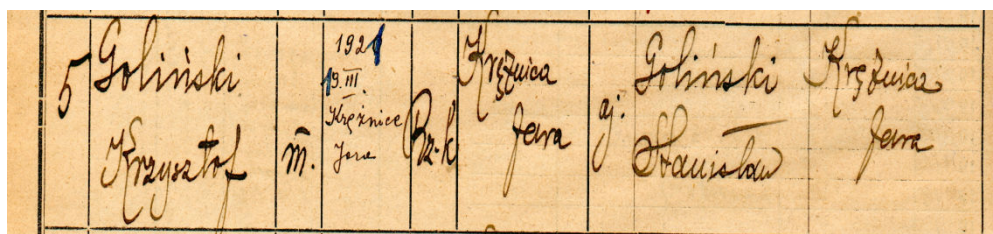 5
Goliński
Krzysztof
m.
19.III.
Krężnice
Jara
Rz-k
Krężnica
Jara
oj.
Goliński
Stanisław
Krężnica
Jara